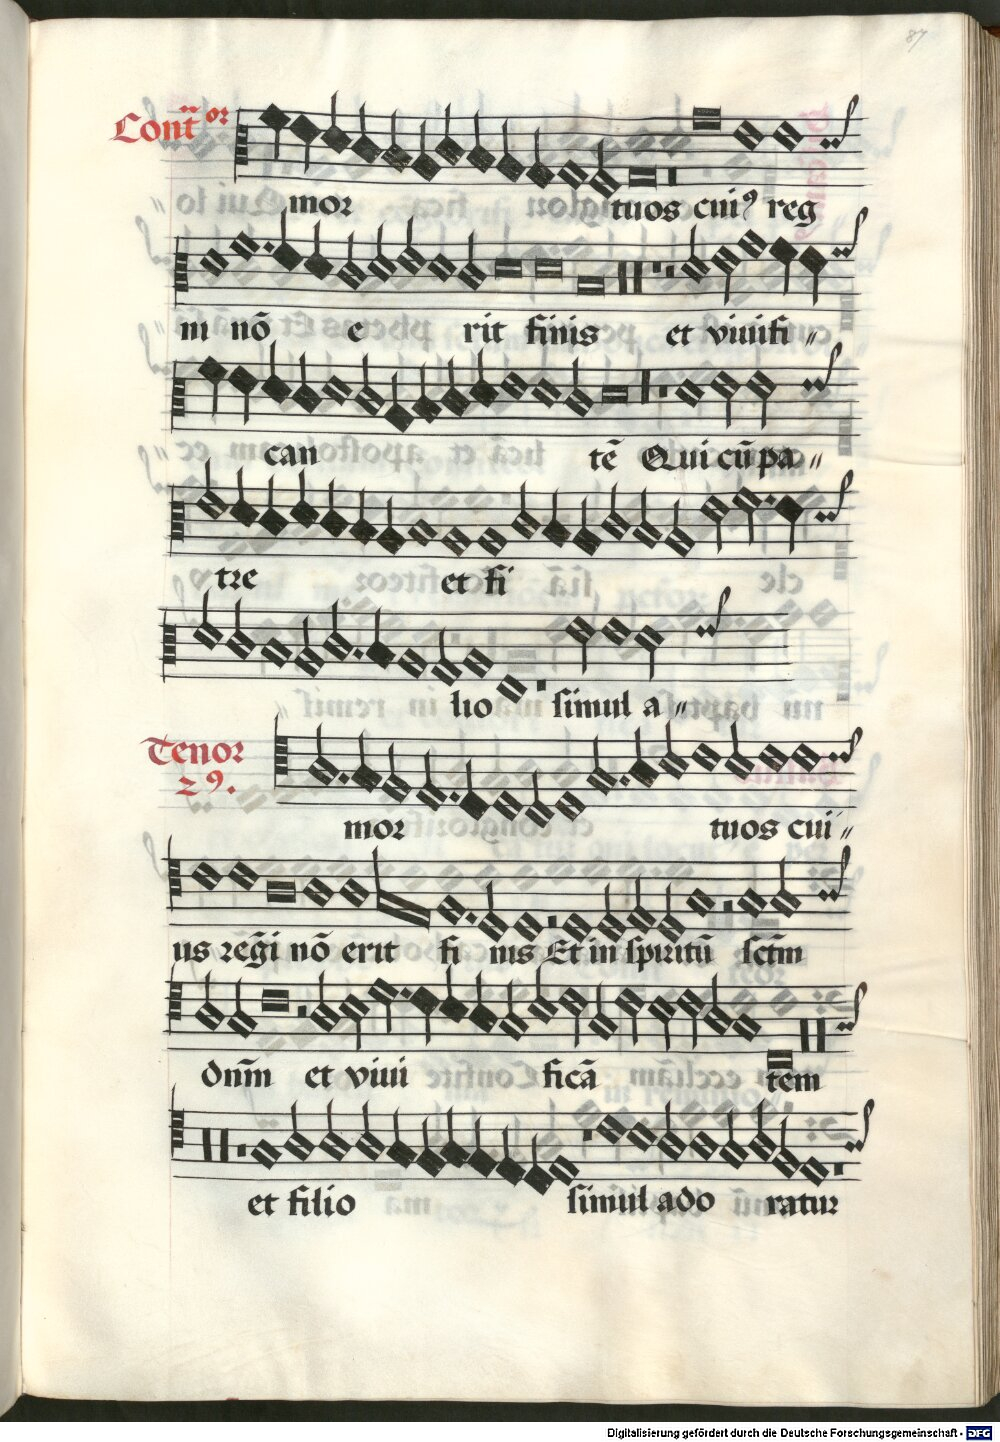 87
Cont̃or
mor tuos cuiꝰ reg
ni nō e rit finis et viuifi〃
can tē Qui cū pa〃
tre et fi
lio simul a〃
Tenor
2ꝰ.
mor tuos cui〃
us reḡi nō erit fi nis Et in spiritū sctm̄
dnm̄ et viui ficā tem
et filio simul ado ratur
Digitalisierung gefördert durch die Deutsche Forschungsgemeinschaft - DFG